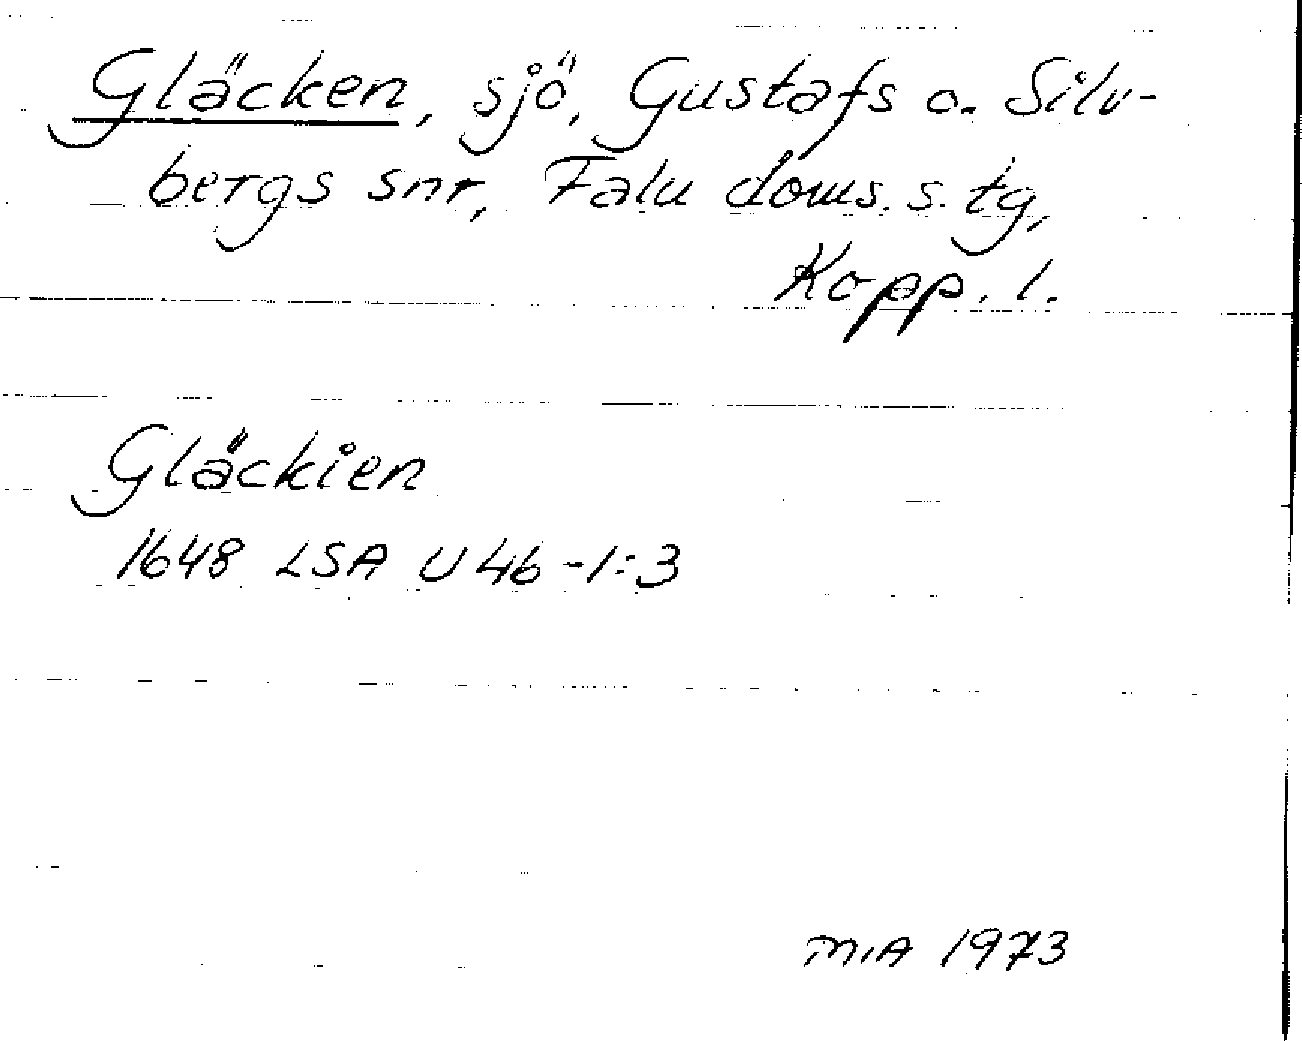 Gläcken, sjö, Gustafs o. Silv-
bergs snr, Falu doms. s. tg,
Kopp. l.
Gläckien
1648 LSA U 46-1:3
MIA 1973